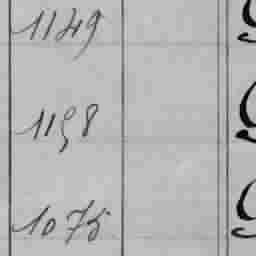 1149
1158
1075